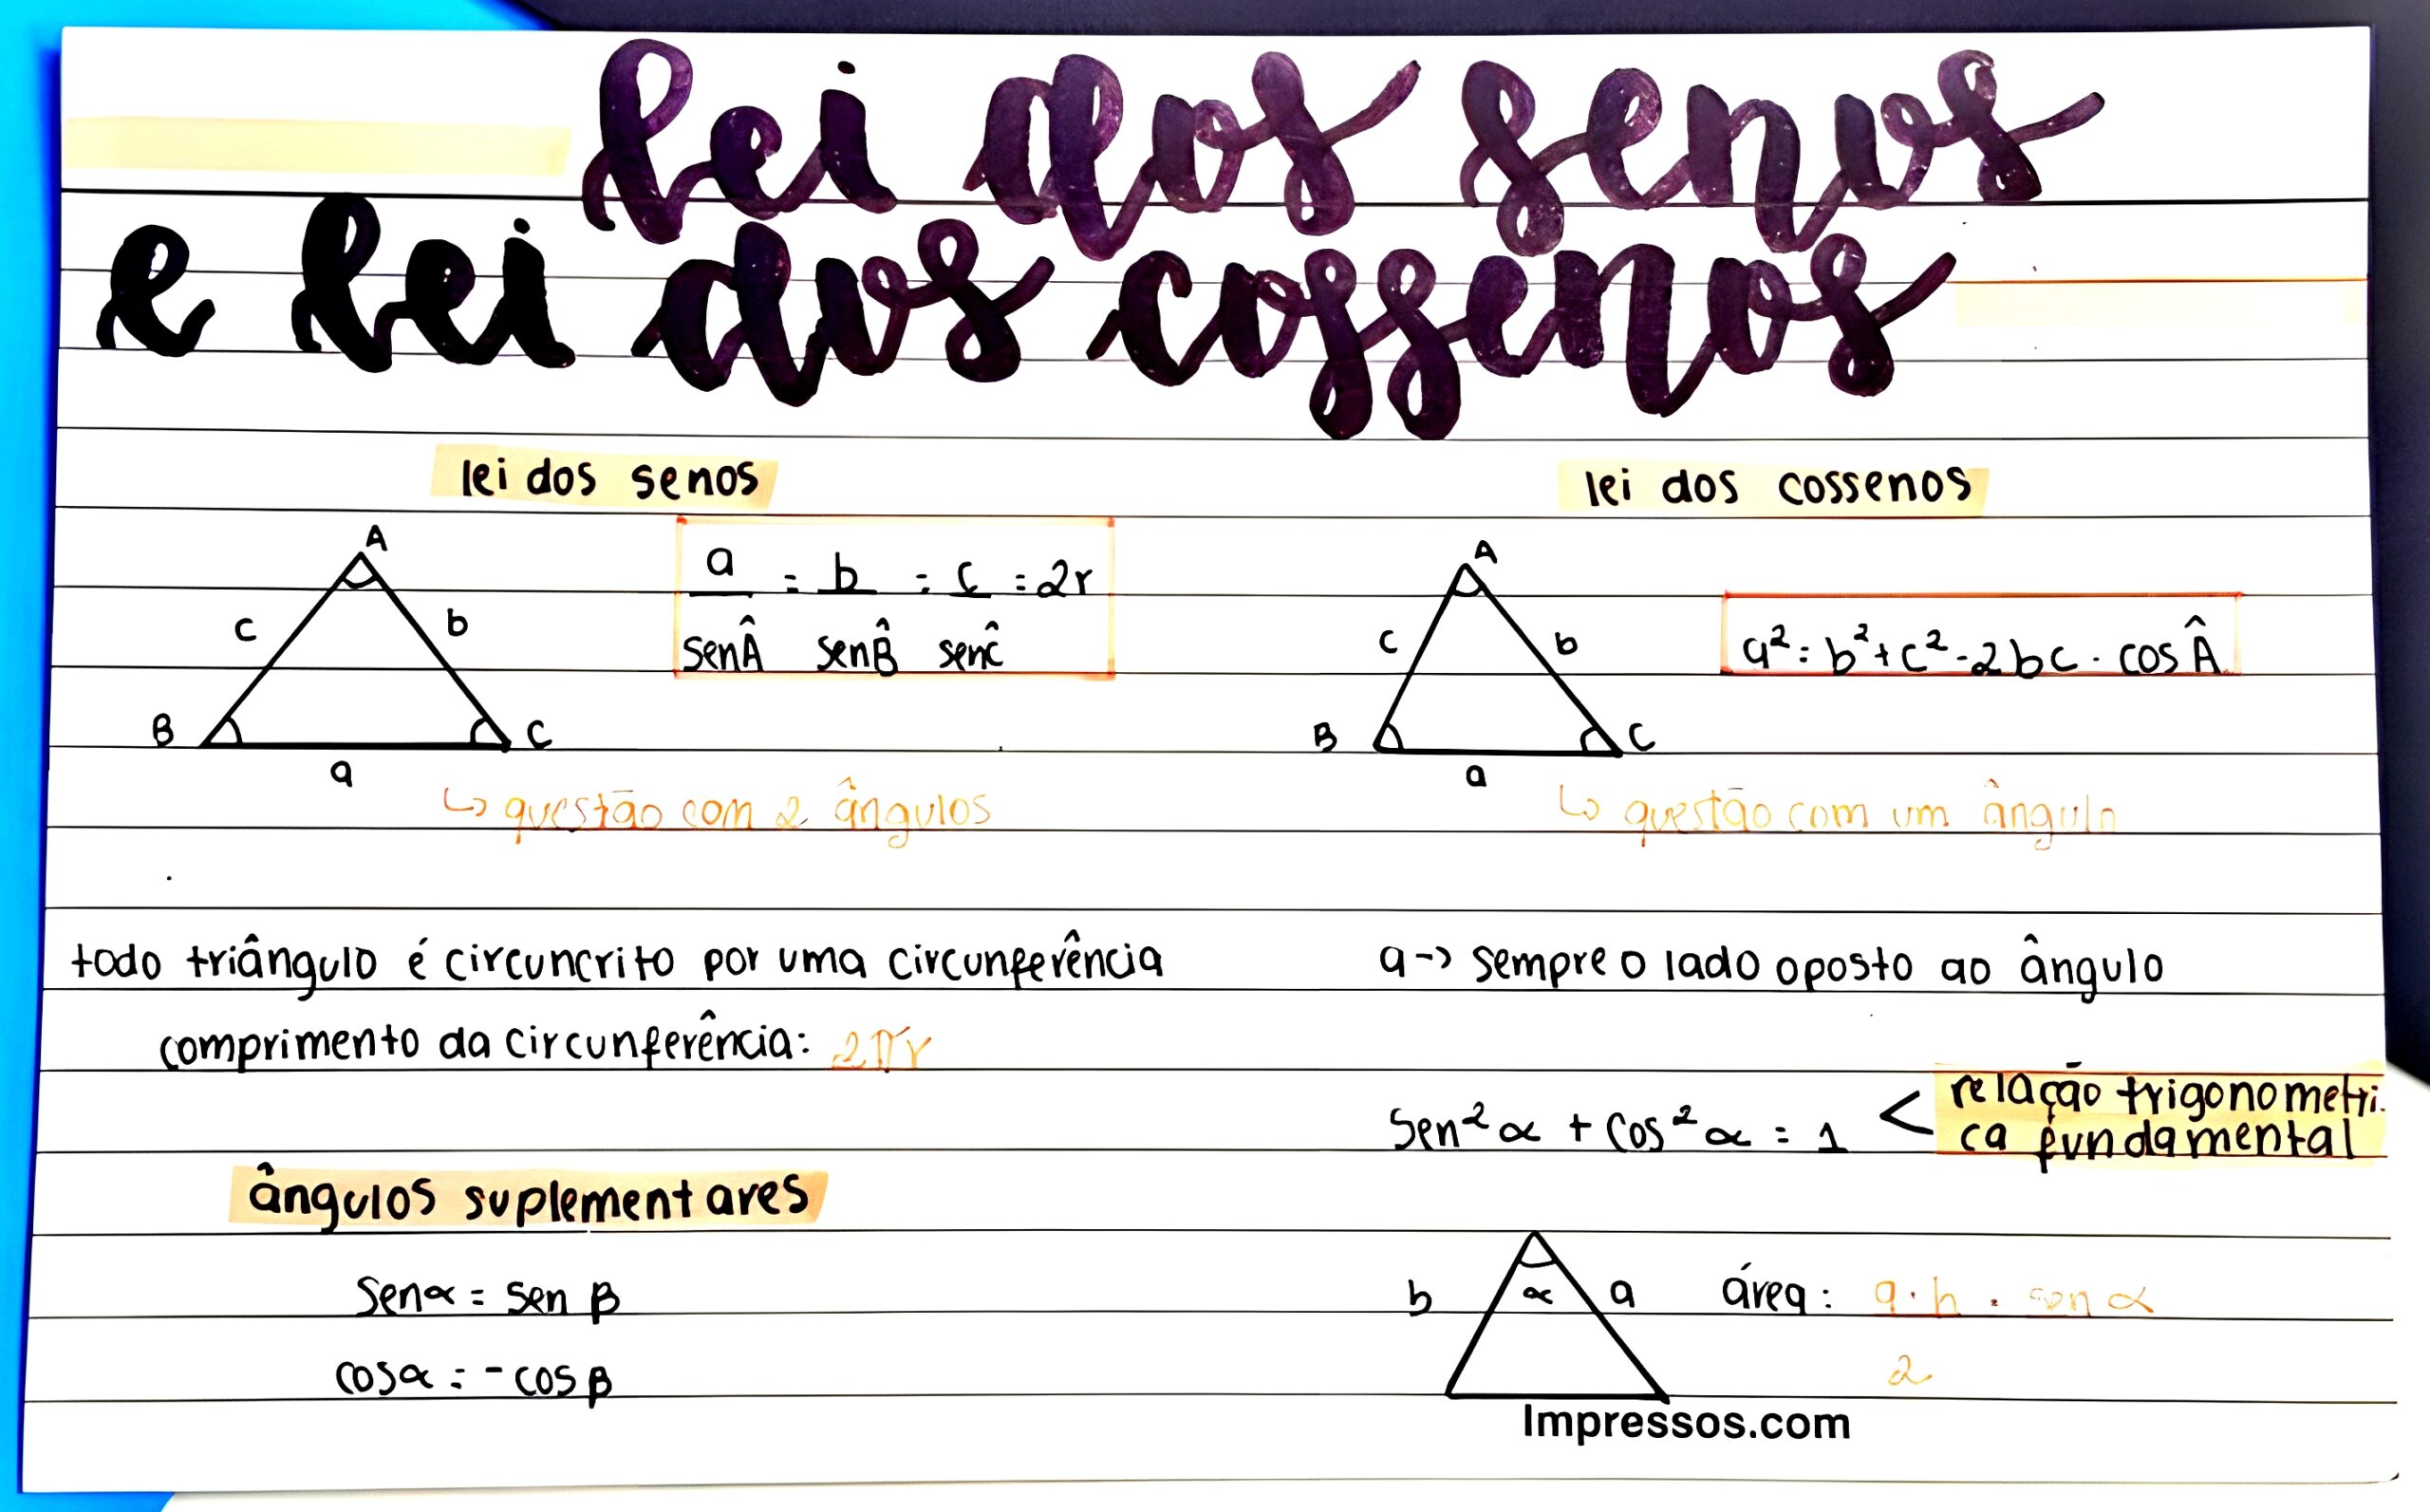 lei dos senos
e lei dos cossenos
lei dos senos
A
c
b
B
C
a
a = b = c = 2r
senÂ senB̂ senĉ
↳ questão com 2 ângulos
lei dos cossenos
A
c
b
B
C
a
a² = b² + c² - 2bc · cos Â
↳ questão com um ângulo
todo triângulo é circuncrito por uma circunferência
comprimento da circunferência: 2πr
a -> sempre o lado oposto ao ângulo
sen² α + cos² α = 1 < relação trigonometri.
ca fundamental
ângulos suplementares
senα = sen β
cosα = - cos β
b
α
a
área: a · b . sen α
2
Impressos.com